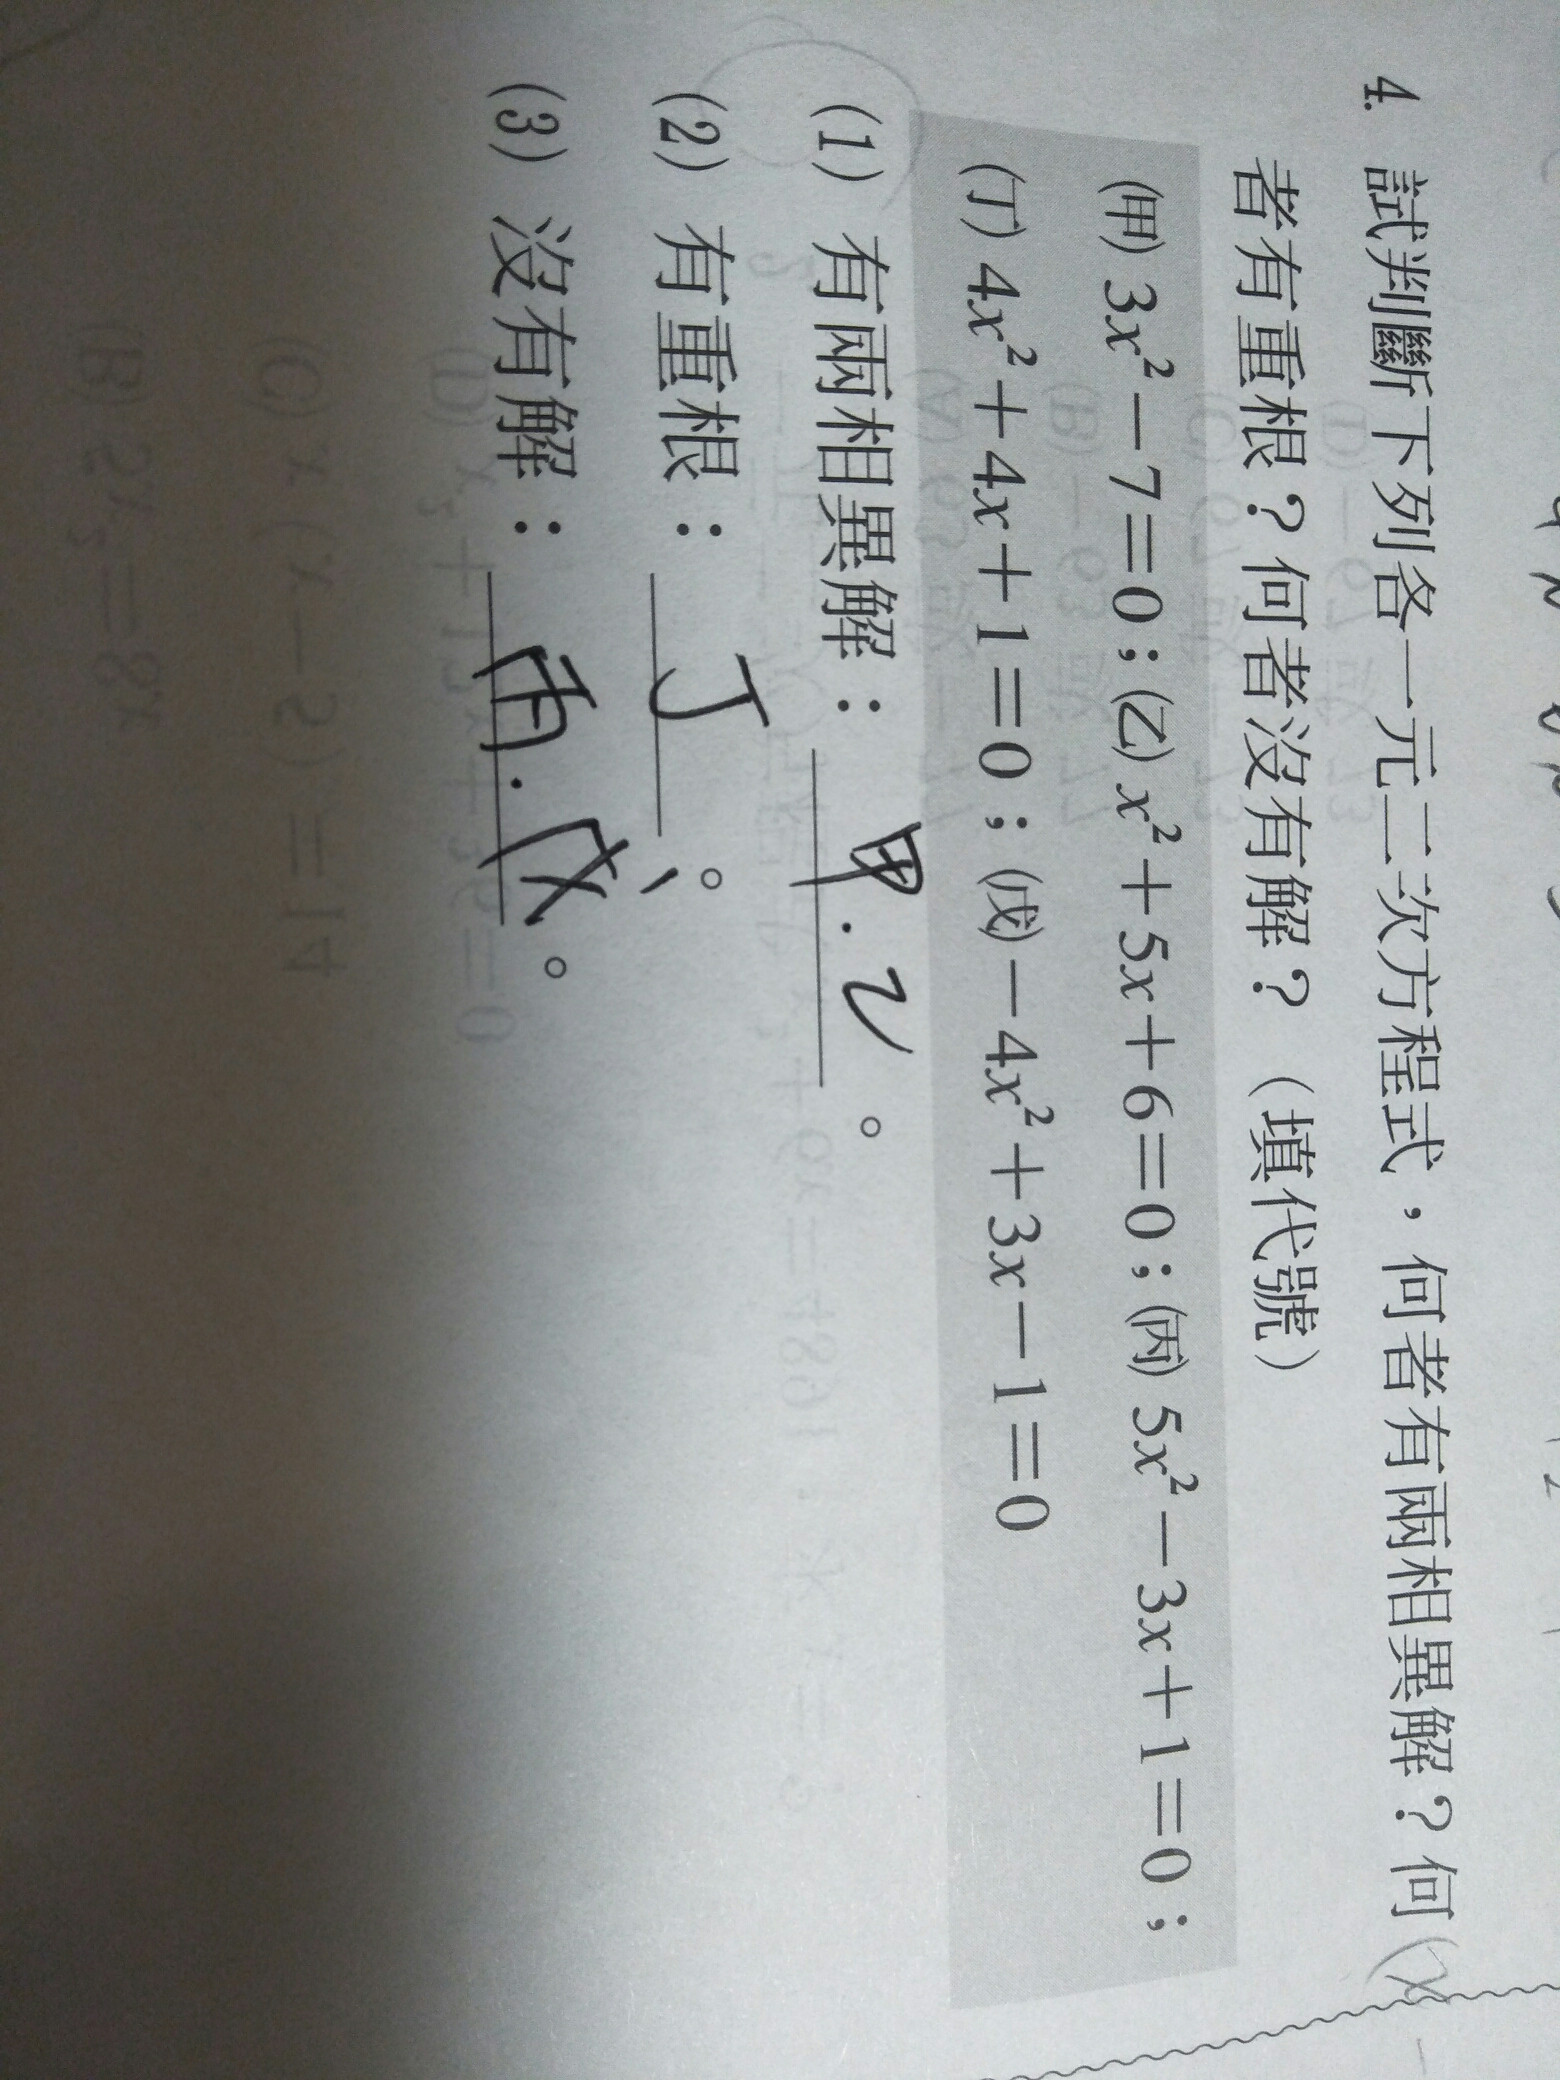 4. 試判斷下列各一元二次方程式，何者有兩相異解？何
者有重根？何者沒有解？（填代號）
(甲) 3x²－7＝0；(乙) x²＋5x＋6＝0；(丙) 5x²－3x＋1＝0；
(丁) 4x²＋4x＋1＝0；(戊)－4x²＋3x－1＝0
(1) 有兩相異解：甲.乙。
(2) 有重根：丁。
(3) 沒有解：丙.戊。